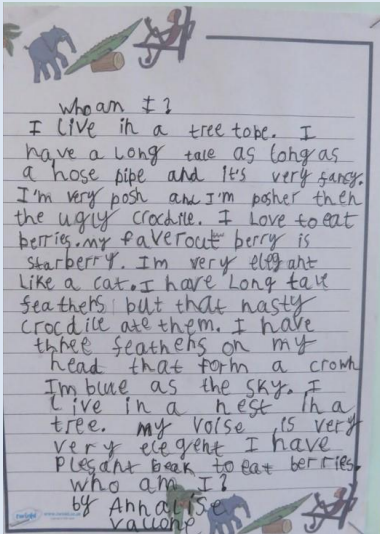 who am I?
I live in a tree tope. I
have a long tale as long as
a hose pipe and it's very fansy.
I'm very posh and I'm posher then
the ugly crocdile. I Love to eat
berries. my faverout berry is
starberry. Im very elegant
Like a cat. I have Long tail
feathers but that nasty
crocdile ate them. I have
three feathers on my
head that form a crown
Im blue as the sky. I
live in a nest in a
tree. my voise is very
very elegent I have
Plesant beak to eat berries.
who am I?
by Annalise
twinkl